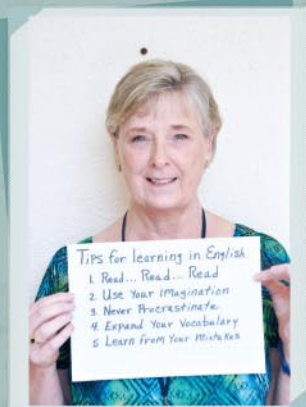 Tips for learning in English
1 Read... Read... Read
2 Use Your Imagination
3 Never Procrastinate
4 Expand Your Vocabulary
5 Learn From Your Mistakes